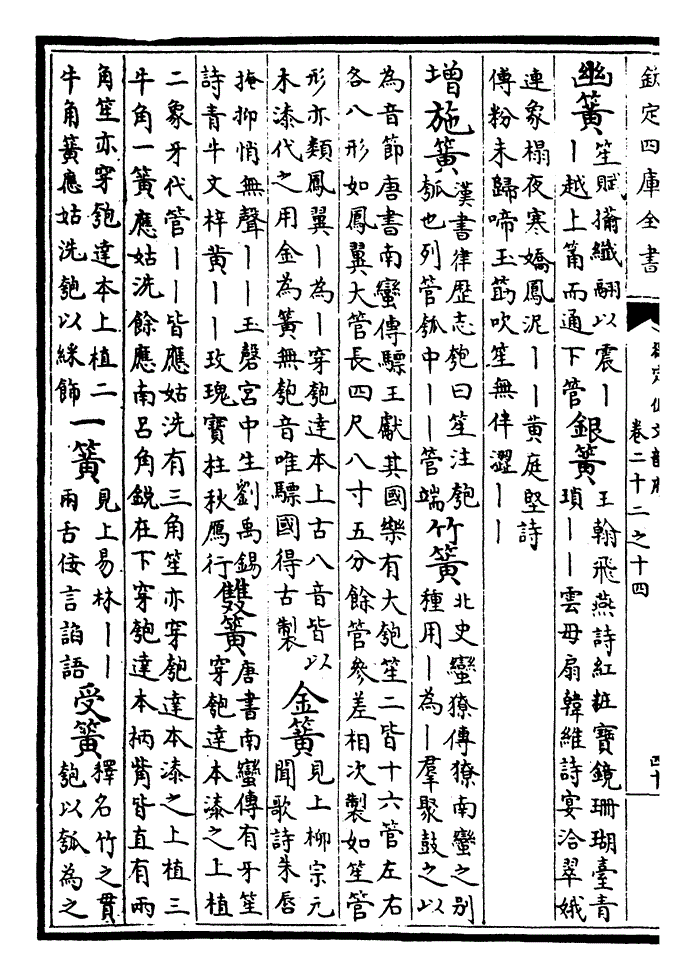 欽定四庫全書
御定佩文韻府
卷二十二之十四
四十
幽簧
笙賦㩗纖翮以震丨
丨越上筩而通下管
銀簧
王翰飛燕詩紅粧寶鏡珊瑚臺青
瑣丨丨雲母扇韓維詩宴洽翠娥
連象榻夜寒嬌鳳泥丨丨黄庭堅詩
傅粉未歸啼玉筯吹笙無伴澀丨丨
增施簧
漢書律歴志匏曰笙注匏
瓠也列管瓠中丨丨管端
竹簧
北史蠻獠傳獠南蠻之别
種用丨為丨羣聚鼓之以
為音節唐書南蠻傳驃王獻其國樂有大匏笙二皆十六管左右
各八形如鳳翼大管長四尺八寸五分餘管參差相次製如笙管
形亦類鳳翼丨為丨穿匏達本上古八音皆以
木漆代之用金為簧無匏音唯驃國得古製
金簧
見上柳宗元
聞歌詩朱唇
掩抑悄無聲丨丨玉磬宮中生劉禹錫
詩青牛文梓黄丨丨玫瑰寶柱秋鴈行
雙簧
唐書南蠻傳有牙笙
穿匏達本漆之上植
二象牙代管丨丨皆應姑洗有三角笙亦穿匏達本漆之上植三
牛角一簧應姑洗餘應南吕角鋭在下穿匏達本柄觜皆直有兩
角笙亦穿匏達本上植二
牛角簧應姑洗匏以綵飾
一簧
見上易林丨丨
兩舌佞言諂語
受簧
釋名竹之貫
匏以瓠為之